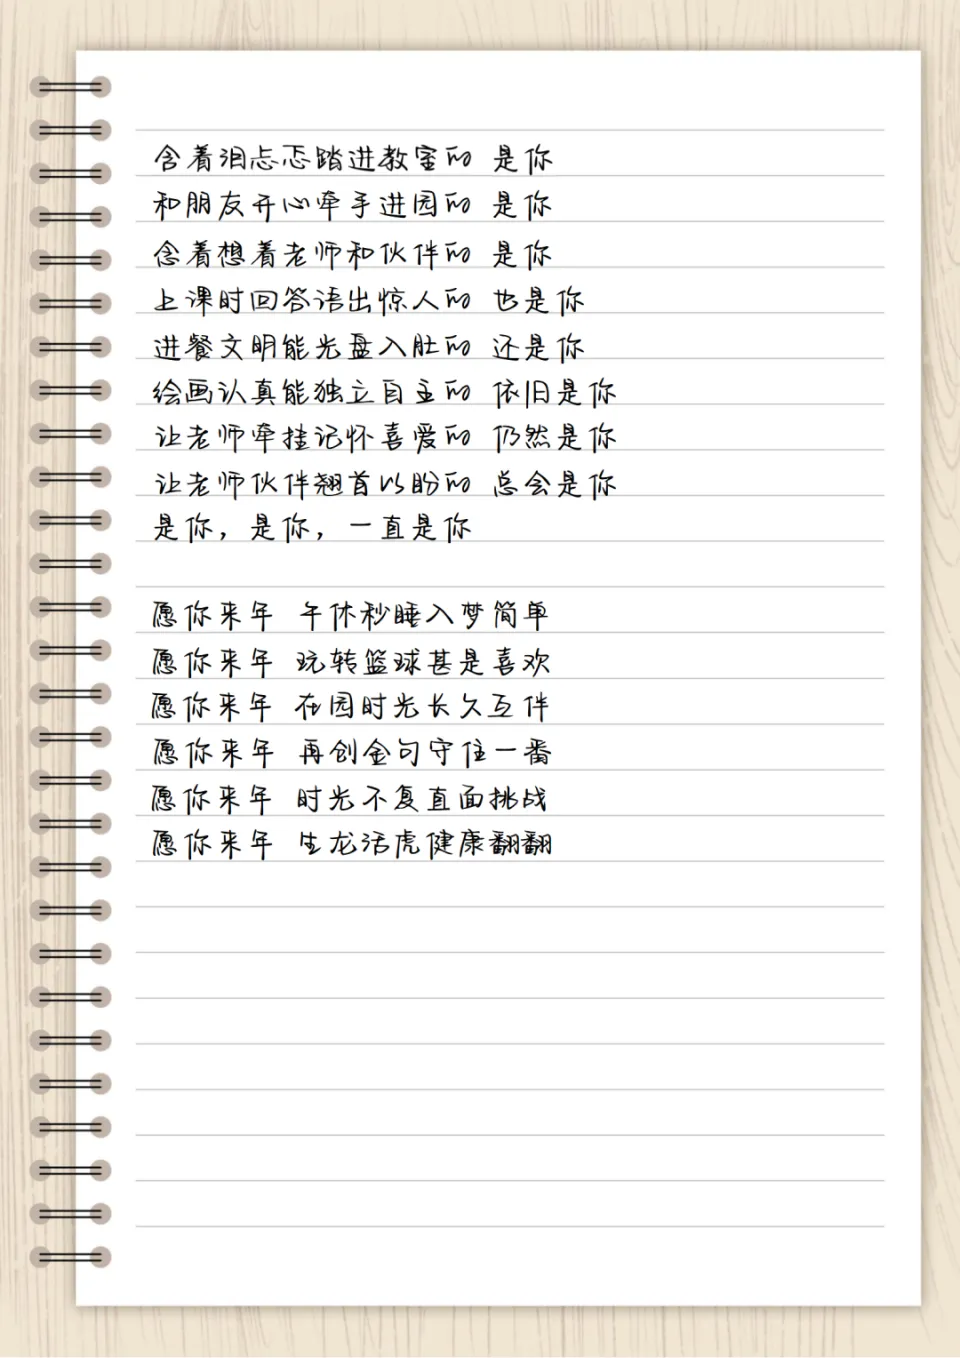 含着泪忐忑踏进教室的 是你
和朋友开心牵手进园的 是你
念着想着老师和伙伴的 是你
上课时回答语出惊人的 也是你
进餐文明能光盘入肚的 还是你
绘画认真能独立自主的 依旧是你
让老师牵挂记怀喜爱的 仍然是你
让老师伙伴翘首以盼的 总会是你
是你，是你，一直是你
愿你来年 午休秒睡入梦简单
愿你来年 玩转篮球甚是喜欢
愿你来年 在园时光长久互伴
愿你来年 再创金句守住一番
愿你来年 时光不复直面挑战
愿你来年 生龙活虎健康翻翻